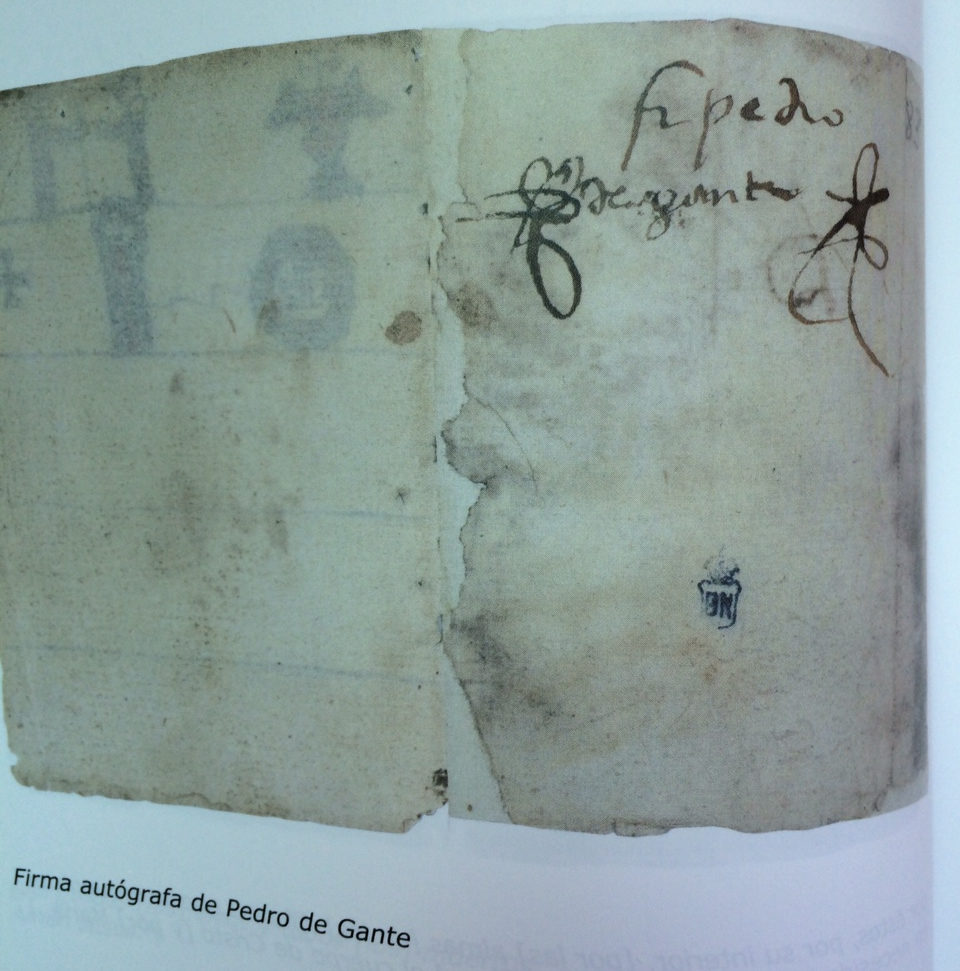 fr pedro
de gante
BN
Firma autógrafa de Pedro de Gante